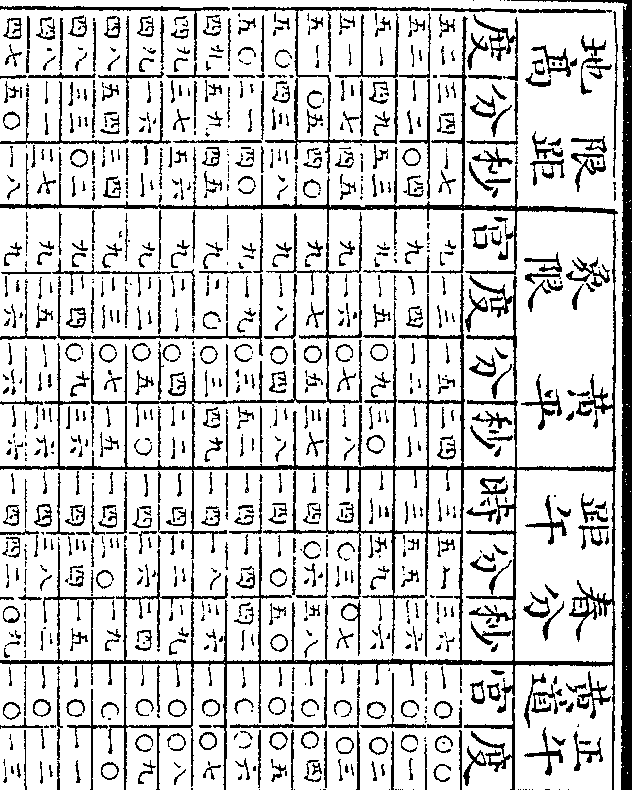 地高 限距 象限 黃平 距午 春分 黃道 正午
度 分 秒 宮 度 分 秒 時 分 秒 宮 度
五二 三四 一七 九 一三 一五 二四 一三 五一 三六 一〇 〇〇
五二 一二 〇四 九 一四 一二 一二 一三 五五 二六 一〇 〇一
五一 四九 五三 九 一五 〇九 三〇 一三 五九 一六 一〇 〇二
五一 二七 四五 九 一六 〇七 一八 一四 〇三 〇七 一〇 〇三
五一 〇五 四〇 九 一七 〇五 三七 一四 〇六 五八 一〇 〇四
五〇 四三 三八 九 一八 〇四 二八 一四 一〇 五〇 一〇 〇五
五〇 二一 四〇 九 一九 〇三 五二 一四 一四 四二 一〇 〇六
四九 五九 四五 九 二〇 〇三 四九 一四 一八 三六 一〇 〇七
四九 三七 五六 九 二一 〇四 二二 一四 二二 二九 一〇 〇八
四九 一六 一二 九 二二 〇五 三〇 一四 二六 二四 一〇 〇九
四八 五四 三四 九 二三 〇七 一五 一四 三〇 一九 一〇 一〇
四八 三三 〇二 九 二四 〇九 三六 一四 三四 一五 一〇 一一
四八 一一 三七 九 二五 一二 三六 一四 三八 一二 一〇 一二
四七 五〇 一八 九 二六 一六 一六 一四 四二 〇九 一〇 一三